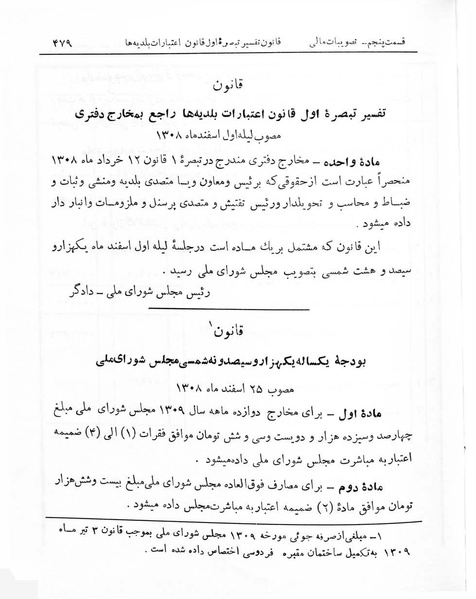 قسمت پنجم_ تصویبات مالی    قانون تفسیر تبصرهٔ اول قانون اعتبارات بلدیه‌ها    ۴۷۹
قانون
تفسیر تبصرهٔ اول قانون اعتبارات بلدیه‌ها راجع بمخارج دفتری
مصوب لیله اول اسفند ماه ۱۳۰۸
مادهٔ واحده – مخارج دفتری مندرج در تبصرهٔ ۱ قانون ۱۲ خرداد ماه ۱۳۰۸
منحصراً عبارت است از حقوقی که برئیس ومعاون ویا متصدی بلدیه ومنشی وثبات و
ضباط و محاسب و تحویلدار ورئیس تفتیش و متصدی پرسنل و ملزومات وانبار دار
داده میشود .
این قانون که مشتمل بریك ماده است درجلسهٔ لیله اول اسفند ماه یکهزارو
سیصد و هشت شمسی بتصویب مجلس شورای ملی رسید .
رئیس مجلس شورای ملی – دادگر
قانون ۱
بودجهٔ یکساله یکهزار و سیصد و نه شمسی مجلس شورای ملی
مصوب ۲۵ اسفند ماه ۱۳۰۸
مادهٔ اول – برای مخارج دوازده ماهه سال ۱۳۰۹ مجلس شورای ملی مبلغ
چهارصد وسیزده هزار و دویست وسی و شش تومان موافق فقرات (۱) الی (۴) ضمیمه
اعتبار به مباشرت مجلس شورای ملی داده میشود .
مادهٔ دوم – برای مصارف فوق‌العاده مجلس شورای ملی مبلغ بیست وشش هزار
تومان موافق مادهٔ (۲) ضمیمه اعتبار به مباشرت مجلس داده میشود .
۱– مبلغی از صرفه جوئی مورخه ۱۳۰۹ مجلس شورای ملی بموجب قانون ۳ تیر ماه
۱۳۰۹ به تکمیل ساختمان مقبره فردوسی اختصاص داده شده است .